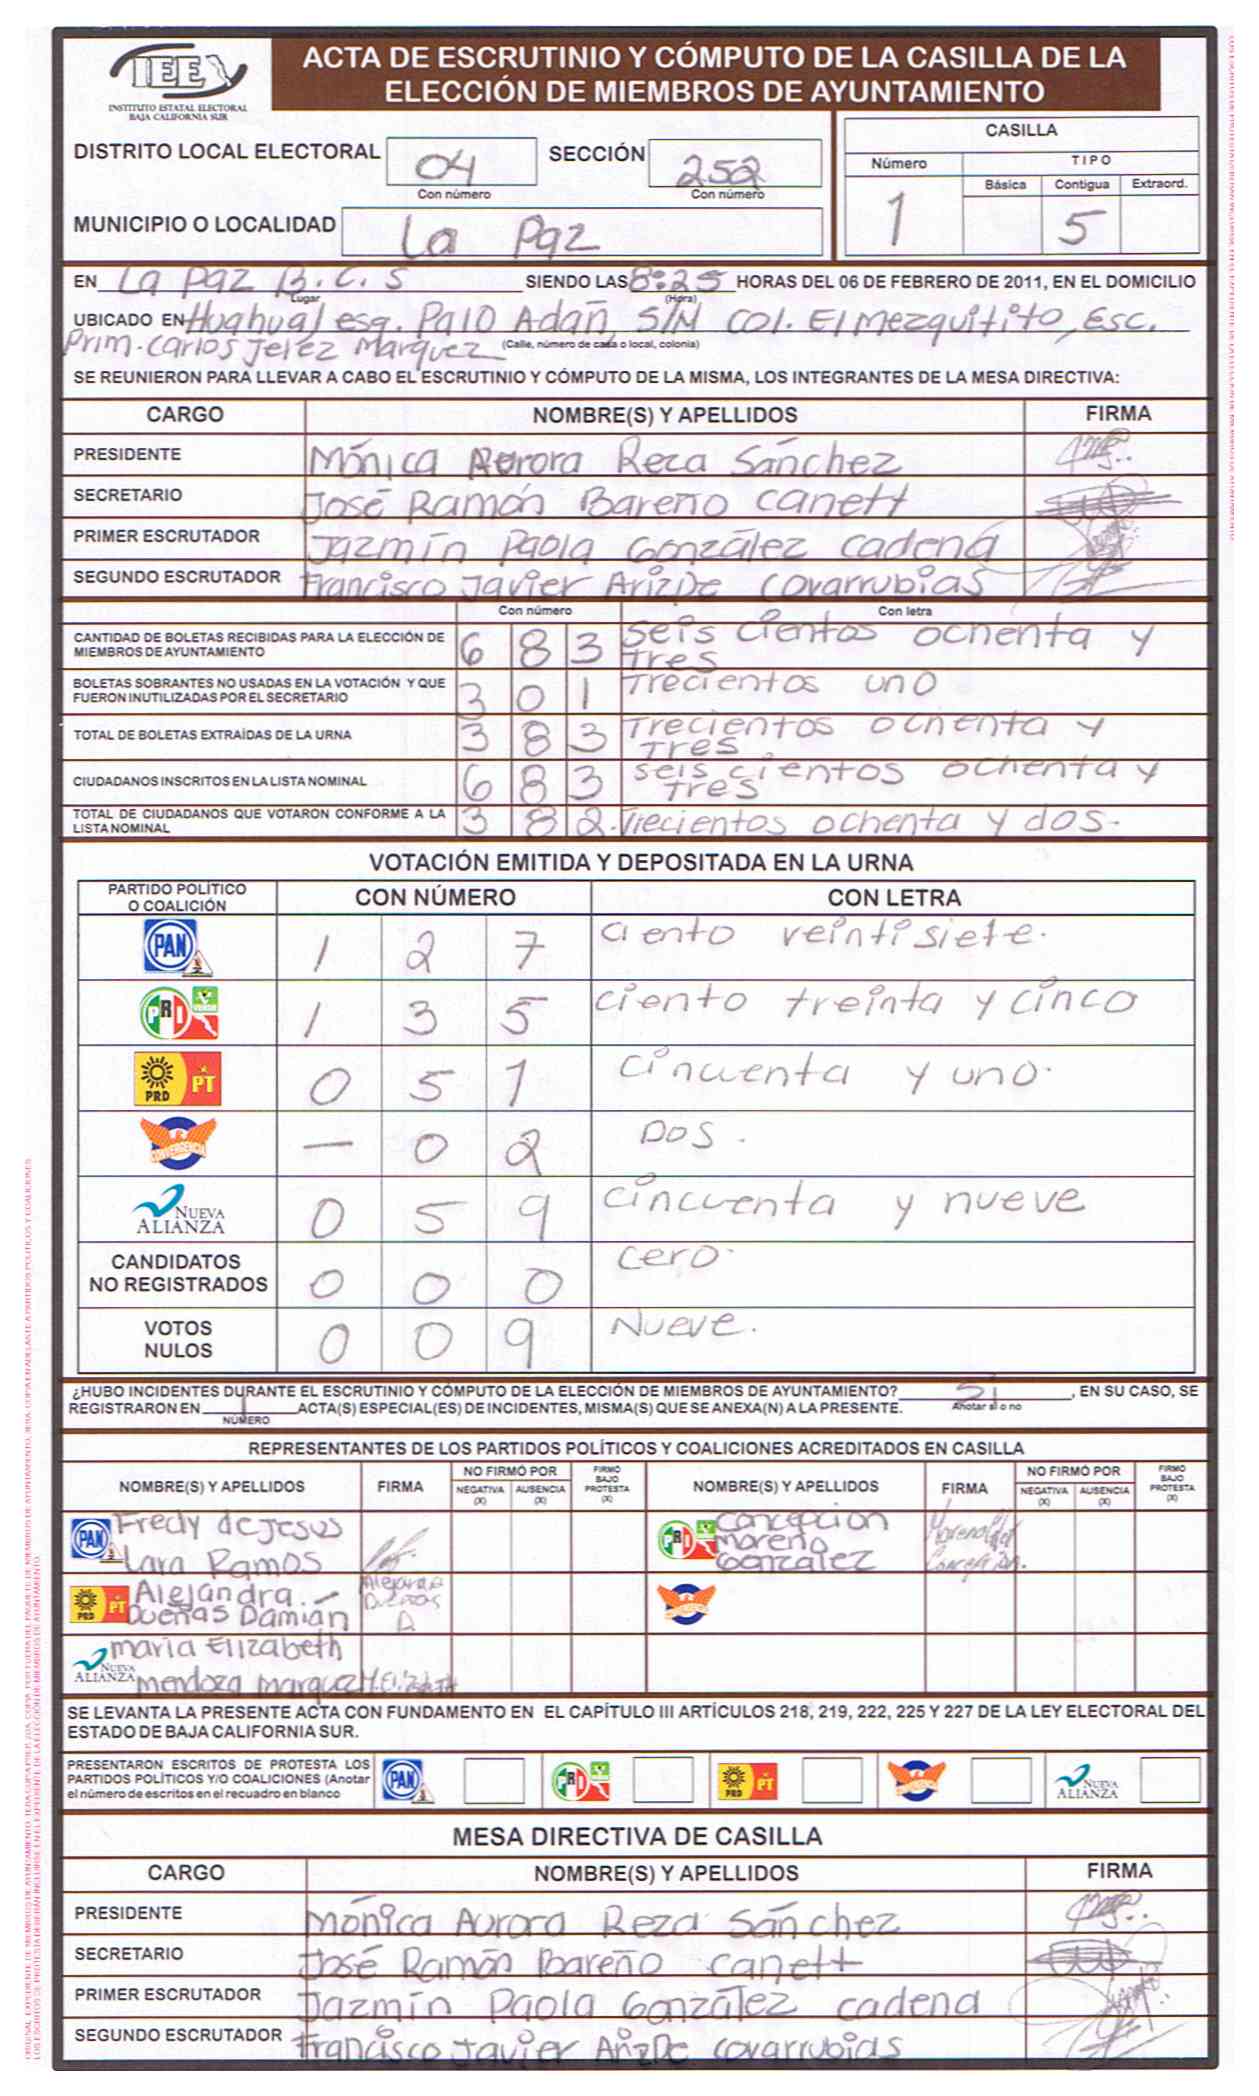 IEE
INSTITUTO ESTATAL ELECTORAL
BAJA CALIFORNIA SUR
ACTA DE ESCRUTINIO Y CÓMPUTO DE LA CASILLA DE LA
ELECCIÓN DE MIEMBROS DE AYUNTAMIENTO
DISTRITO LOCAL ELECTORAL 04 SECCIÓN 252
Con número Con número
MUNICIPIO O LOCALIDAD La Paz
CASILLA
Número TIPO
Básica Contigua Extraord.
1 5
EN La Paz B.C.S SIENDO LAS 8:25 HORAS DEL 06 DE FEBRERO DE 2011, EN EL DOMICILIO
Lugar (Hora)
UBICADO EN Huahual esq. Palo Adán, S/N Col. El Mezquitito, Esc.
Prim. Carlos Jerez Marquez (Calle, número de casa o local, colonia)
SE REUNIERON PARA LLEVAR A CABO EL ESCRUTINIO Y CÓMPUTO DE LA MISMA, LOS INTEGRANTES DE LA MESA DIRECTIVA:
CARGO NOMBRE(S) Y APELLIDOS FIRMA
PRESIDENTE Mónica Aurora Reza Sánchez
SECRETARIO José Ramón Bareño Canett
PRIMER ESCRUTADOR Jazmín Paola González Cadena
SEGUNDO ESCRUTADOR Francisco Javier Arizpe Covarrubias
Con número Con letra
CANTIDAD DE BOLETAS RECIBIDAS PARA LA ELECCIÓN DE
MIEMBROS DE AYUNTAMIENTO 6 8 3 Seis cientos ochenta y
tres
BOLETAS SOBRANTES NO USADAS EN LA VOTACIÓN Y QUE
FUERON INUTILIZADAS POR EL SECRETARIO 3 0 1 Trecientos uno
TOTAL DE BOLETAS EXTRAÍDAS DE LA URNA 3 8 3 Trecientos ochenta y
tres
CIUDADANOS INSCRITOS EN LA LISTA NOMINAL 6 8 3 seis cientos ochenta y
tres
TOTAL DE CIUDADANOS QUE VOTARON CONFORME A LA
LISTA NOMINAL 3 8 2. Trecientos ochenta y dos.
VOTACIÓN EMITIDA Y DEPOSITADA EN LA URNA
PARTIDO POLÍTICO
O COALICIÓN CON NÚMERO CON LETRA
PAN 1 2 7 ciento veintisiete.
PRI VERDE 1 3 5 ciento treinta y cinco
PRD PT 0 5 1 cincuenta y uno.
CONVERGENCIA — 0 2 Dos.
NUEVA ALIANZA 0 5 9 cincuenta y nueve
CANDIDATOS
NO REGISTRADOS 0 0 0 cero.
VOTOS
NULOS 0 0 9 Nueve.
¿HUBO INCIDENTES DURANTE EL ESCRUTINIO Y CÓMPUTO DE LA ELECCIÓN DE MIEMBROS DE AYUNTAMIENTO? Si , EN SU CASO, SE
REGISTRARON EN 1 ACTA(S) ESPECIAL(ES) DE INCIDENTES, MISMA(S) QUE SE ANEXA(N) A LA PRESENTE. Anotar sí o no
NÚMERO
REPRESENTANTES DE LOS PARTIDOS POLÍTICOS Y COALICIONES ACREDITADOS EN CASILLA
NOMBRE(S) Y APELLIDOS FIRMA NO FIRMÓ POR NEGATIVA (X) AUSENCIA (X) FIRMÓ BAJO PROTESTA (X) NOMBRE(S) Y APELLIDOS FIRMA NO FIRMÓ POR NEGATIVA (X) AUSENCIA (X) FIRMÓ BAJO PROTESTA (X)
PAN Fredy de Jesus
Lara Ramos
PRI Concepcion
moreno
Gonzalez
PRD PT Alejandra
Dueñas Damian
Alejandra
Dueñas
D
NUEVA ALIANZA maria Elizabeth
mendoza marquez
SE LEVANTA LA PRESENTE ACTA CON FUNDAMENTO EN EL CAPÍTULO III ARTÍCULOS 218, 219, 222, 225 Y 227 DE LA LEY ELECTORAL DEL
ESTADO DE BAJA CALIFORNIA SUR.
PRESENTARON ESCRITOS DE PROTESTA LOS
PARTIDOS POLÍTICOS Y/O COALICIONES (Anotar
el número de escritos en el recuadro en blanco
PAN PRI PRD PT NUEVA ALIANZA
MESA DIRECTIVA DE CASILLA
CARGO NOMBRE(S) Y APELLIDOS FIRMA
PRESIDENTE Mónica Aurora Reza Sánchez
SECRETARIO José Ramón Bareño Canett
PRIMER ESCRUTADOR Jazmín Paola González Cadena
SEGUNDO ESCRUTADOR Francisco Javier Arizpe Covarrubias